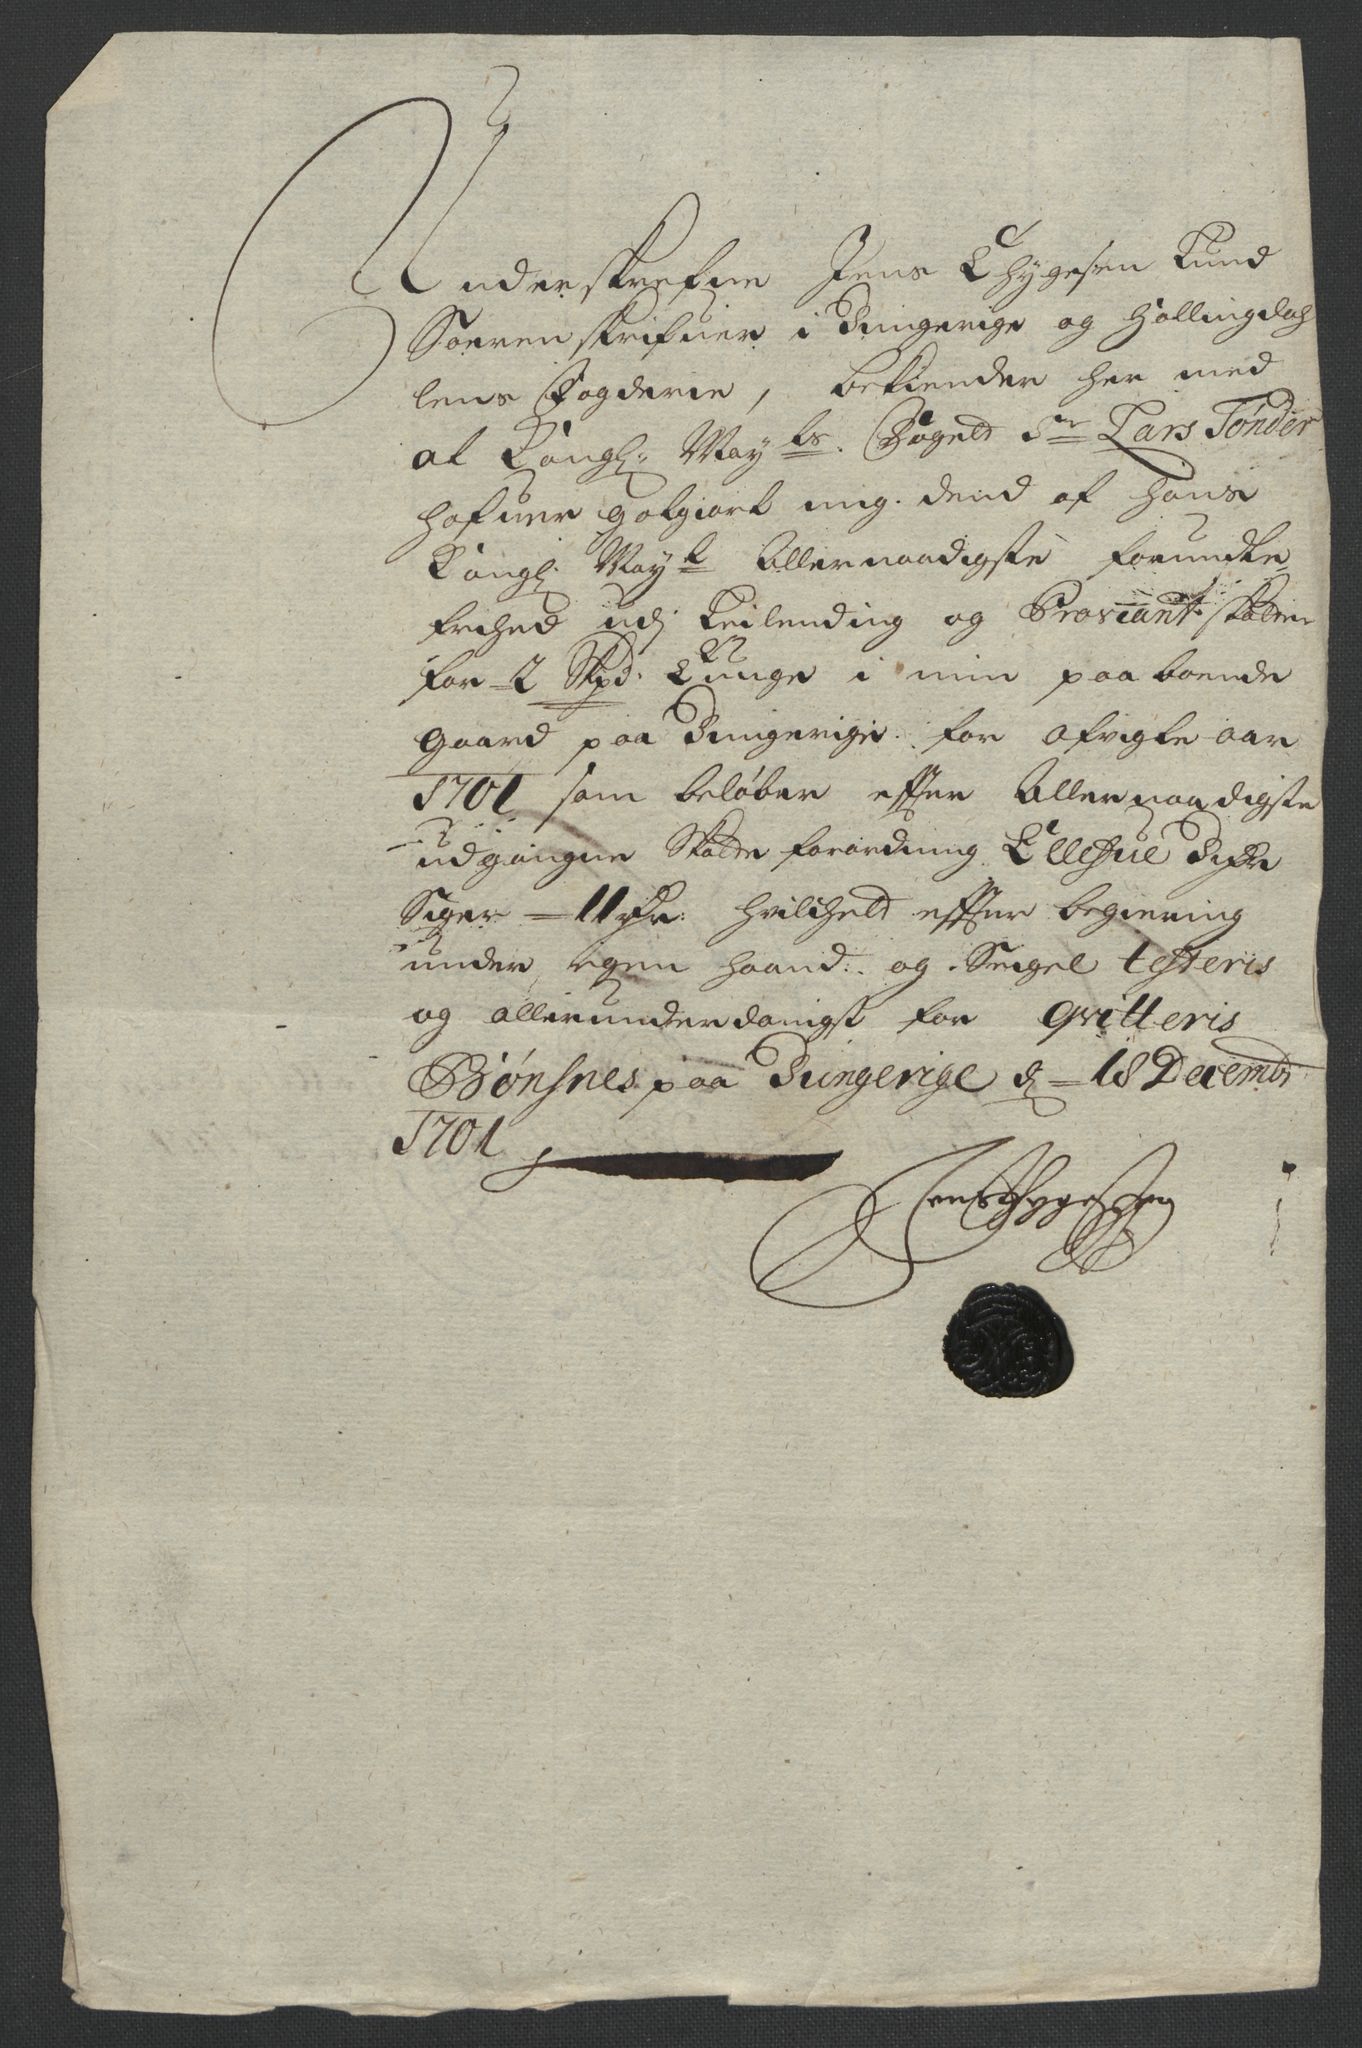 Underskrefne Jens Thygesen Lund
Sorenskrifuer i Ringerige og Hallingdah
lens Fogderie, bekiender her med
at Kongl: May:ts Fogeld Sr Lars Tønder
hafuer gotgiort mig dend af hans
Kongl: May:t Allernaadigste forundte
frihed udj Leilending og Proviant skatten
for 2 Skpd: Tunge i min paa boende
gaard paa Ringerige for afvigte aar
1701 som beløber effter Allernaadigste
udgangne Skatte forordning Ellefue Rixdr
Siger 11 rdr: hvilchet effter begiering
under egen haand og Seigel testeris
og allerunderdanigst for qvitteris
Bønsnes paa Ringerige d 18 Decembr
1701
Jens Thygessen